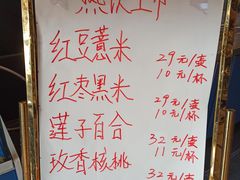 热饮上市
红豆薏米 29元/壶
10元/杯
红枣黑米 29元/壶
10元/杯
莲子百合 32元/壶
11元/杯
玫香核桃 32元/壶